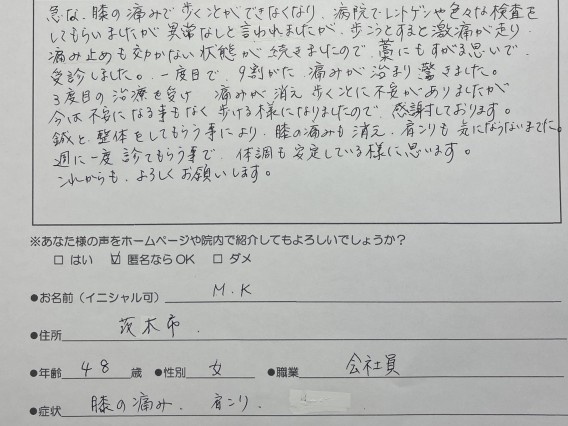 急な、膝の痛みで歩くことができなくなり、病院でレントゲンや色々な検査を
してもらいましたが異常なしと言われましたが、歩こうとすると激痛が走り、
痛み止めも効かない状態が続きましたので、藁にもすがる思いで、
受診しました。一度目で、9割がた、痛みが治まり驚きました。
3度目の治療を受け 痛みが消え歩くことに不安がありましたが
今は不安になる事もなく歩ける様になりましたので、感謝しております。
鍼と整体をしてもらう事により、膝の痛みも消え、肩こりも気にならないまでに。
週に一度診てもらう事で、体調も安定している様に思います。
これからも、よろしくお願いします。
※あなた様の声をホームページや院内で紹介してもよろしいでしょうか?
□ はい ☑ 匿名ならOK □ ダメ
●お名前(イニシャル可) M.K
●住所 茨木市.
●年齢 48 歳 ●性別 女 ●職業 会社員
●症状 膝の痛み. 肩こり.